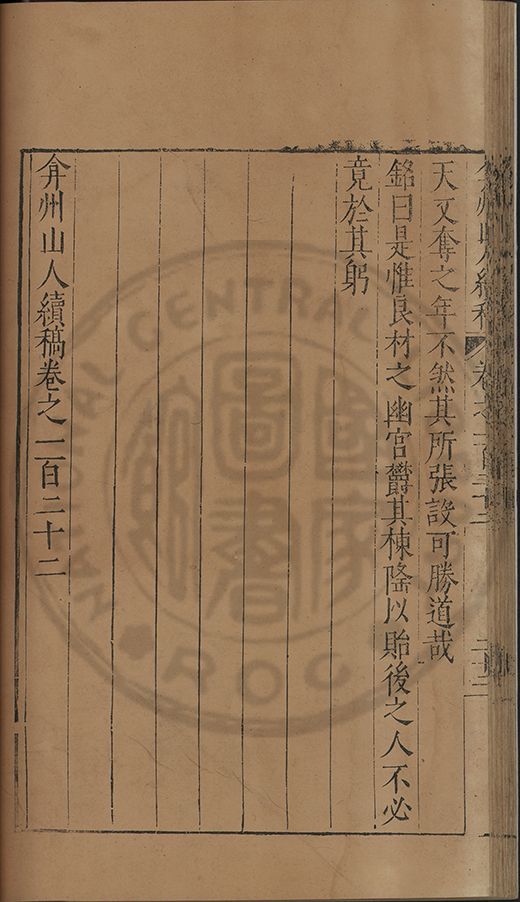 天又奪之年不然其所張設可勝道哉
銘曰是惟良材之幽宮欝其棟隆以貽後之人不必
竟於其躬
弇州山人續稿卷之一百二十二
CENTRAL
ROC
圖書